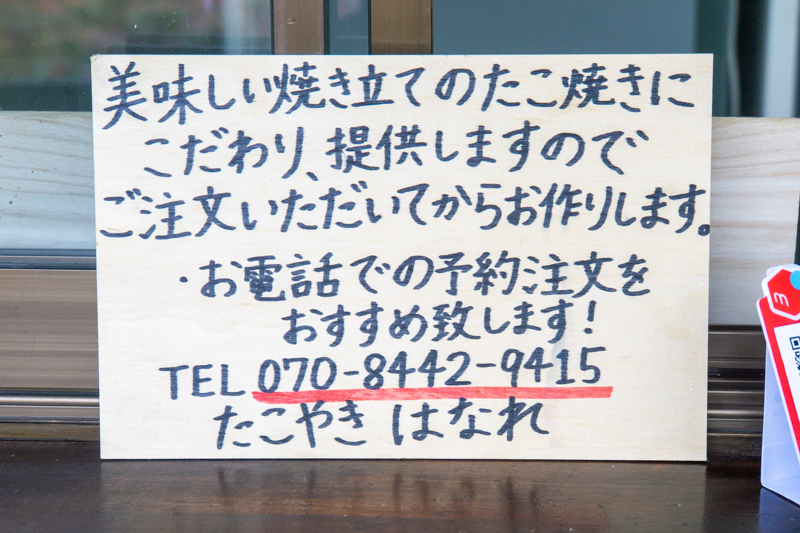 美味しい焼き立てのたこ焼きに
こだわり、提供しますので
ご注文いただいてからお作りします。
・お電話での予約注文を
おすすめ致します!
TEL 070-8442-9415
たこやき はなれ